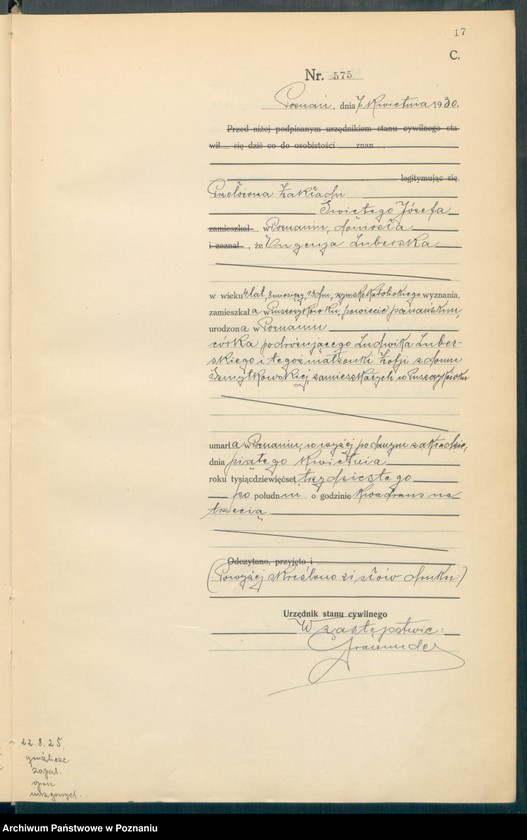 17
C.
Nr. 575
Poznań, dnia 7 Kwietnia 1930.
Przed niżej podpisanym urzędnikiem stanu cywilnego sta-
wił się dziś co do osobistości znan
legitymując się
Przełożona Zakładu
Świętego Józefa
zamieszkał w Poznaniu, doniosła
i zeznał, że Eugenja Luberska
w wieku 4 lat, 3 miesięcy, 13 dni, rzymsko katolickiego wyznania,
zamieszkała w Puszczykowie, powiecie poznańskim,
urodzona w Poznaniu
córka podróżującego Ludwika Luber-
skiego i tegoż małżonki Zofji z domu
Szmytkowskiej, zamieszkałych w Puszczykowie
umarła w Poznaniu, w wyżej podanym zakładzie,
dnia piątego Kwietnia
roku tysiącdziewięćset trzydziestego
po południu o godzinie kwadrans na
trzecią
Odczytano, przyjęto i
(Powyżej skreślono słów druku)
Urzędnik stanu cywilnego
W zastępstwie:
22.8.25
zapal.
opon
mózgowych.
Archiwum Państwowe w Poznaniu